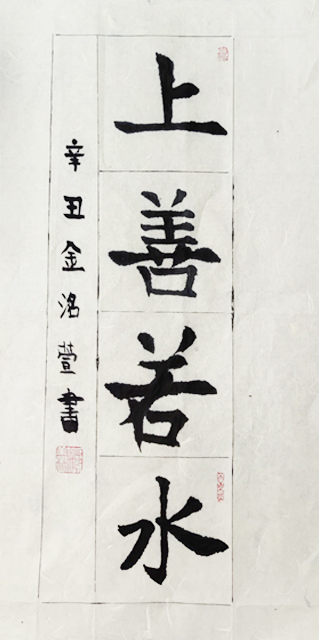 上善若水
辛丑金洺萱書